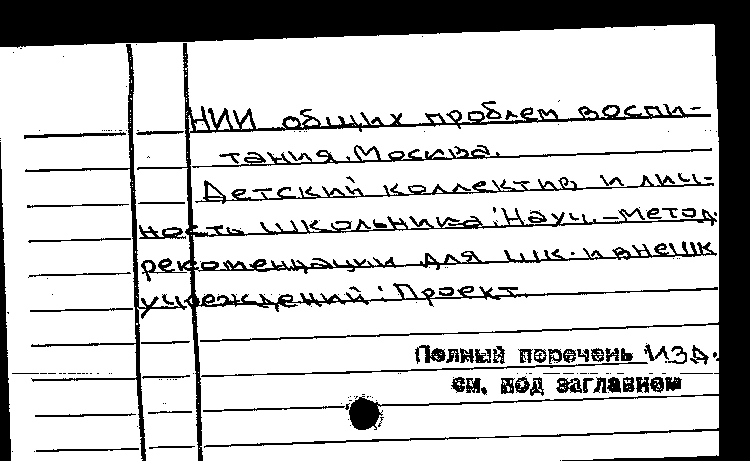 НИИ общих проблем воспи-
тания. Москва.
Детский коллектив и лич-
ность школьника: Науч.-метод.
рекомендации для шк. и внешк
учреждений: Проект.
Полный перечень изд.
см. под заглавием